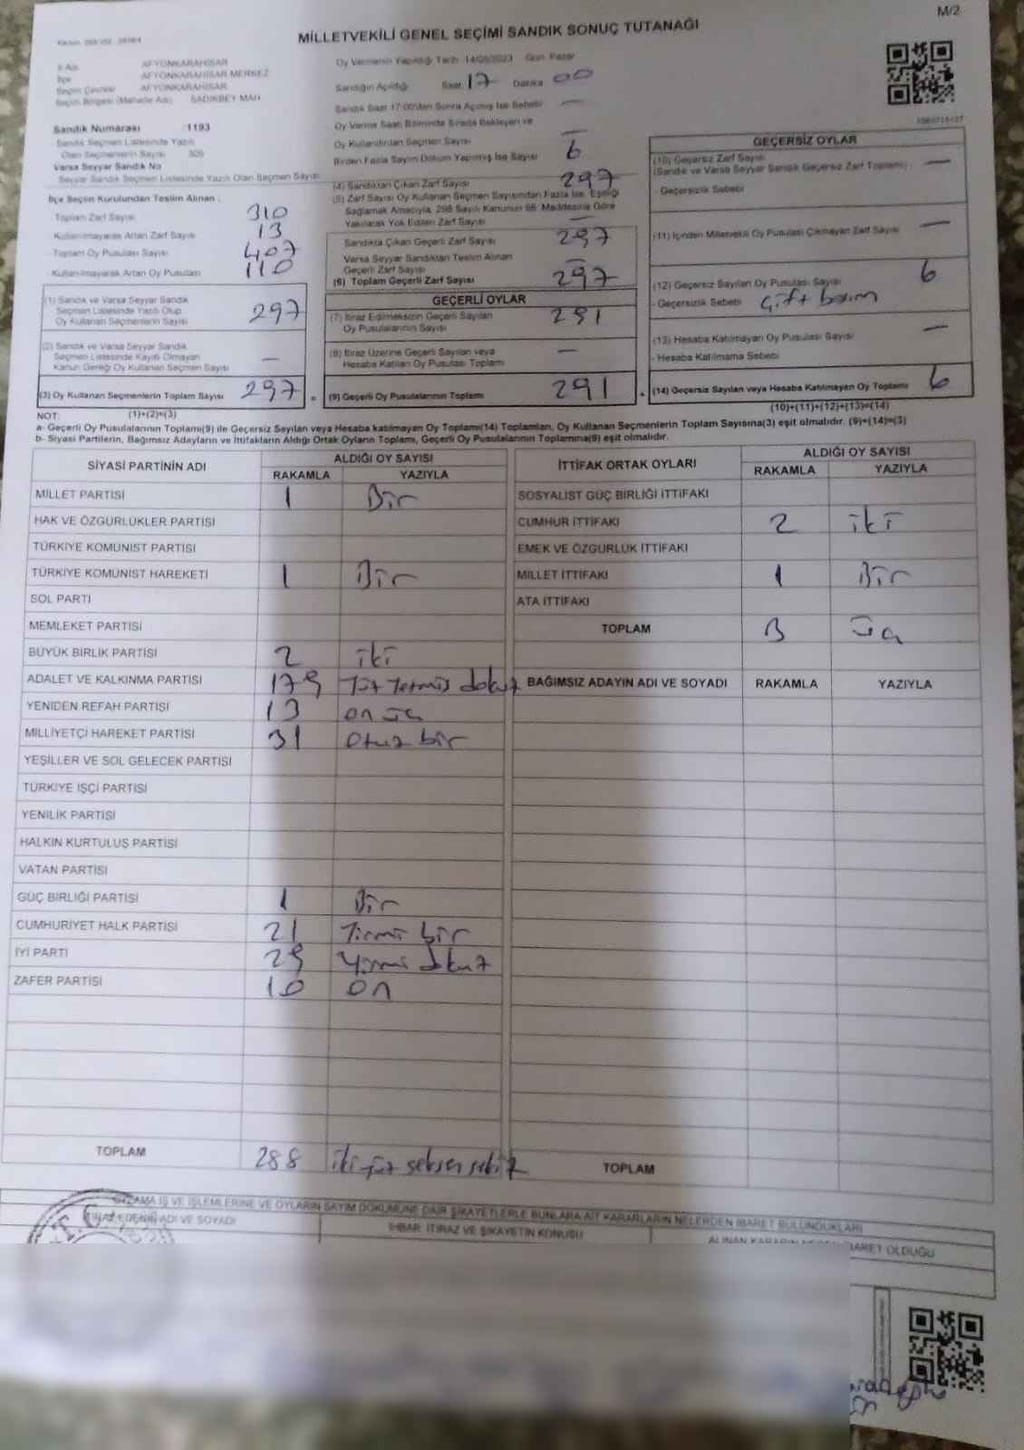 M/2
MİLLETVEKİLİ GENEL SEÇİMİ SANDIK SONUÇ TUTANAĞI
İl Adı AFYONKARAHİSAR
İlçe AFYONKARAHİSAR MERKEZ
Seçim Çevresi AFYONKARAHİSAR
Seçim Bölgesi (Mahalle Adı) SADIKBEY MAH
Oy Vermenin Yapıldığı Tarih 14/05/2023 Gün Pazar
Sandığın Açıldığı Saat 17 Dakika 00
Sandık Saat 17:00'dan Sonra Açılmış İse Sebebi —
Oy Verme Saati Bitiminde Sırada Bekleyen ve
Oy Kullandırılan Seçmen Sayısı —
Birden Fazla Sayım Döküm Yapılmış İse Sayısı 6
Sandık Numarası :1193
Sandık Seçmen Listesinde Yazılı
Olan Seçmenlerin Sayısı 305
Varsa Seyyar Sandık No
Seyyar Sandık Seçmen Listesinde Yazılı Olan Seçmen Sayısı
İlçe Seçim Kurulundan Teslim Alınan :
Toplam Zarf Sayısı 310
Kullanılmayarak Artan Zarf Sayısı 13
Toplam Oy Pusulası Sayısı 407
Kullanılmayarak Artan Oy Pusulası 110
(1) Sandık ve Varsa Seyyar Sandık
Seçmen Listesinde Yazılı Olup
Oy Kullanan Seçmenlerin Sayısı 297
(2) Sandık ve Varsa Seyyar Sandık
Seçmen Listesinde Kayıtlı Olmayan
Kanun Gereği Oy Kullanan Seçmen Sayısı —
(3) Oy Kullanan Seçmenlerin Toplam Sayısı 297
(4) Sandıktan Çıkan Zarf Sayısı 297
(5) Zarf Sayısı Oy Kullanan Seçmen Sayısından Fazla İse, Eşitliği
Sağlamak Amacıyla, 298 Sayılı Kanunun 98. Maddesine Göre
Yakılarak Yok Edilen Zarf Sayısı —
Sandıkta Çıkan Geçerli Zarf Sayısı 297
Varsa Seyyar Sandıktan Teslim Alınan
Geçerli Zarf Sayısı —
(6) Toplam Geçerli Zarf Sayısı 297
GEÇERLİ OYLAR
(7) İtiraz Edilmeksizin Geçerli Sayılan
Oy Pusulalarının Sayısı 291
(8) İtiraz Üzerine Geçerli Sayılan veya
Hesaba Katılan Oy Pusulası Toplamı —
(9) Geçerli Oy Pusulalarının Toplamı 291
GEÇERSİZ OYLAR
(10) Geçersiz Zarf Sayısı
(Sandık ve Varsa Seyyar Sandık Geçersiz Zarf Toplamı) —
- Geçersizlik Sebebi
(11) İçinden Milletvekili Oy Pusulası Çıkmayan Zarf Sayısı —
(12) Geçersiz Sayılan Oy Pusulası Sayısı 6
- Geçersizlik Sebebi çift basım
(13) Hesaba Katılmayan Oy Pusulası Sayısı —
- Hesaba Katılmama Sebebi
(14) Geçersiz Sayılan veya Hesaba Katılmayan Oy Toplamı 6
NOT: (1)+(2)=(3) (10)+(11)+(12)+(13)=(14)
a- Geçerli Oy Pusulalarının Toplamı(9) ile Geçersiz Sayılan veya Hesaba katılmayan Oy Toplamı(14) Toplamları, Oy Kullanan Seçmenlerin Toplam Sayısına(3) eşit olmalıdır. (9)+(14)=(3)
b- Siyasi Partilerin, Bağımsız Adayların ve İttifakların Aldığı Ortak Oyların Toplamı, Geçerli Oy Pusulalarının Toplamına(9) eşit olmalıdır.
SİYASİ PARTİNİN ADI ALDIĞI OY SAYISI
RAKAMLA YAZIYLA
MİLLET PARTİSİ 1 Bir
HAK VE ÖZGÜRLÜKLER PARTİSİ
TÜRKİYE KOMÜNİST PARTİSİ
TÜRKİYE KOMÜNİST HAREKETİ 1 Bir
SOL PARTİ
MEMLEKET PARTİSİ
BÜYÜK BİRLİK PARTİSİ 2 iki
ADALET VE KALKINMA PARTİSİ 179 Yüz Yetmiş dokuz
YENİDEN REFAH PARTİSİ 13 on üç
MİLLİYETÇİ HAREKET PARTİSİ 31 Otuz bir
YEŞİLLER VE SOL GELECEK PARTİSİ
TÜRKİYE İŞÇİ PARTİSİ
YENİLİK PARTİSİ
HALKIN KURTULUŞ PARTİSİ
VATAN PARTİSİ
GÜÇ BİRLİĞİ PARTİSİ 1 Bir
CUMHURİYET HALK PARTİSİ 21 Yirmi bir
İYİ PARTİ 29 Yirmi dokuz
ZAFER PARTİSİ 10 on
TOPLAM 288 iki yüz seksen sekiz
İTTİFAK ORTAK OYLARI ALDIĞI OY SAYISI
RAKAMLA YAZIYLA
SOSYALİST GÜÇ BİRLİĞİ İTTİFAKI
CUMHUR İTTİFAKI 2 iki
EMEK VE ÖZGÜRLÜK İTTİFAKI
MİLLET İTTİFAKI 1 Bir
ATA İTTİFAKI
TOPLAM 3 üç
BAĞIMSIZ ADAYIN ADI VE SOYADI RAKAMLA YAZIYLA
TOPLAM
İŞ VE İŞLEMLERİNE VE OYLARIN SAYIM DÖKÜMÜNE DAİR ŞİKAYETLERLE BUNLARA AİT KARARLARIN NELERDEN İBARET BULUNDUKLARI
İTİRAZ EDENİN ADI VE SOYADI
İHBAR, İTİRAZ VE ŞİKAYETİN KONUSU
İBARET OLDUĞU
T.C.